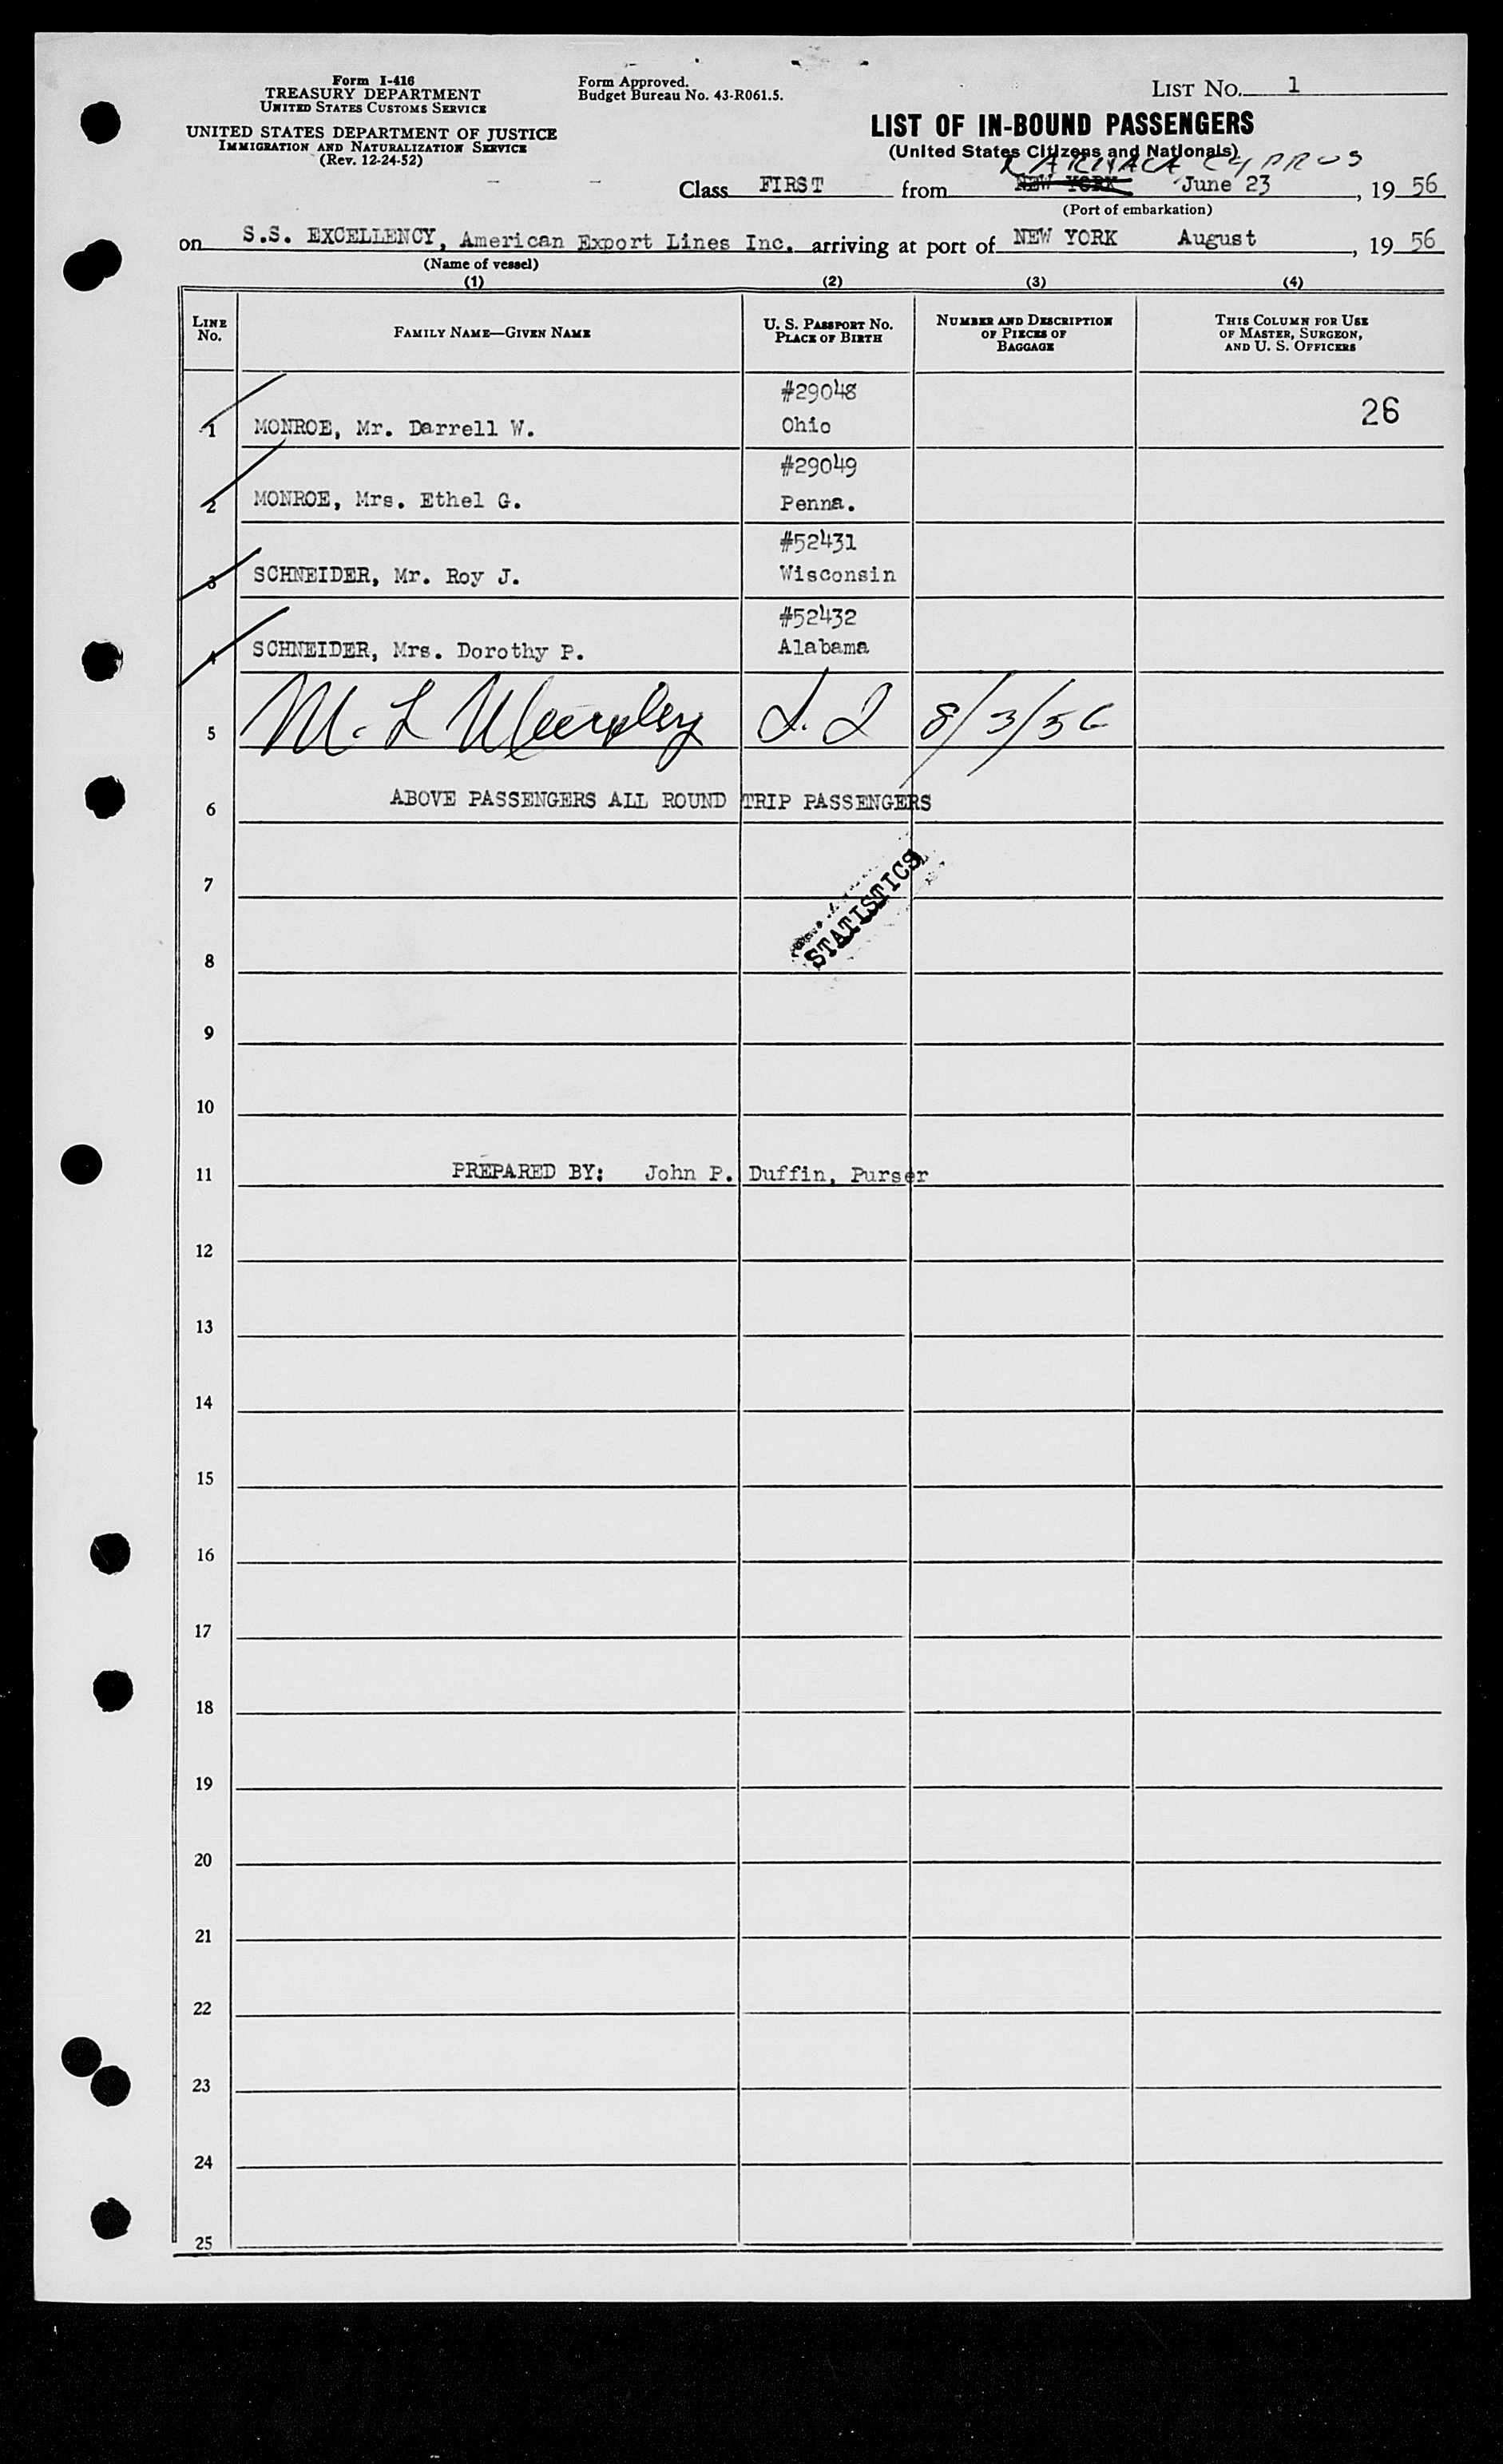 Form I-416
TREASURY DEPARTMENT
UNITED STATES CUSTOMS SERVICE
UNITED STATES DEPARTMENT OF JUSTICE
IMMIGRATION AND NATURALIZATION SERVICE
(Rev. 12-24-52)
Form Approved.
Budget Bureau No. 43-R061.5.
LIST NO. 1
LIST OF IN-BOUND PASSENGERS
(United States Citizens and Nationals)
LARNACA CYPRUS
Class FIRST from NEW YORK June 23, 19 56
(Port of embarkation)
on S.S. EXCELLENCY, American Export Lines Inc. arriving at port of NEW YORK August, 19 56
(Name of vessel)
(1) (2) (3) (4)
LINE No. FAMILY NAME—GIVEN NAME U. S. PASSPORT NO. PLACE OF BIRTH NUMBER AND DESCRIPTION OF PIECES OF BAGGAGE THIS COLUMN FOR USE OF MASTER, SURGEON, AND U. S. OFFICERS
#29048
26
1 MONROE, Mr. Darrell W. Ohio
#29049
2 MONROE, Mrs. Ethel G. Penna.
#52431
3 SCHNEIDER, Mr. Roy J. Wisconsin
#52432
4 SCHNEIDER, Mrs. Dorothy P. Alabama
5 M. L 8/3/56
6 ABOVE PASSENGERS ALL ROUND TRIP PASSENGERS
7
STATISTICS
8
9
10
11 PREPARED BY: John P. Duffin, Purser
12
13
14
15
16
17
18
19
20
21
22
23
24
25